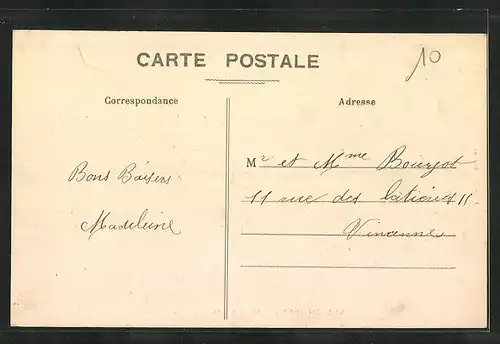 CARTE POSTALE
10
Correspondance
Adresse
Bons Baisers
Madeleine
Mr et Mme Bourgot
11 rue des 11
Vincennes